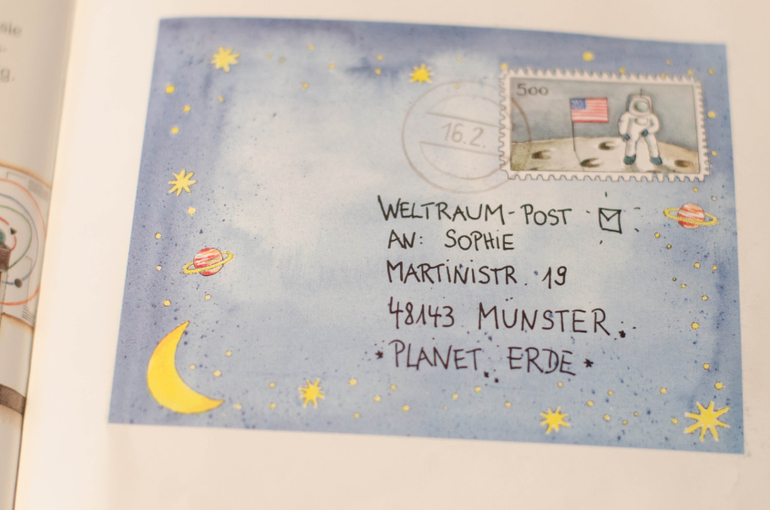 sie
g.
500
16.2.
WELTRAUM-POST
AN: SOPHIE
MARTINISTR. 19
48143 MÜNSTER
PLANET ERDE